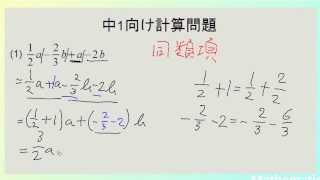 中1向け計算問題
(1) 1/2 a - 2/3 b + a - 2b
同類項
= 1/2 a + 1a - 2/3 b - 2b
= (1/2 + 1) a + (-2/3 - 2) b
= 3/2 a
1/2 + 1 = 1/2 + 2/2
-2/3 - 2 = -2/3 - 6/3